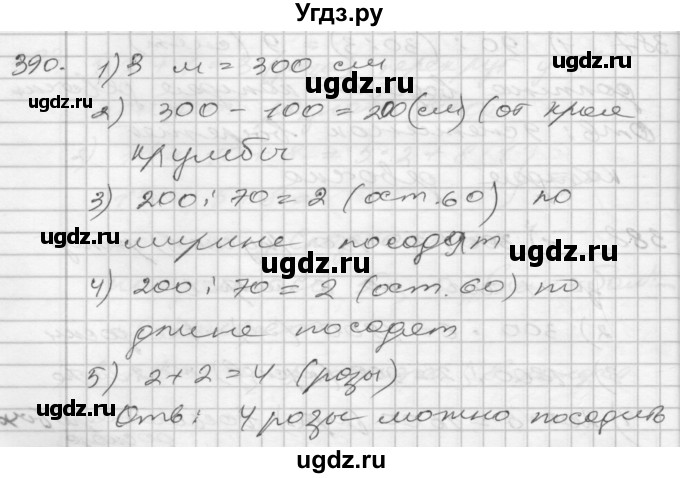 Угдз.ру
390. 1) 3 м = 300 см
2) 300 - 100 = 200 (см) (от края
клумбы
3) 200 : 70 = 2 (ост. 60) по
ширине посадят
4) 200 : 70 = 2 (ост. 60) по
длине посадят
5) 2 + 2 = 4 (розы)
Отв: 4 розы можно посадить
ugdz.ru
ugdz.ru
ugdz.ru
ugdz.ru
ugdz.ru
ugdz.ru
ugdz.ru
ugdz.ru
ugdz.ru
ugdz.ru